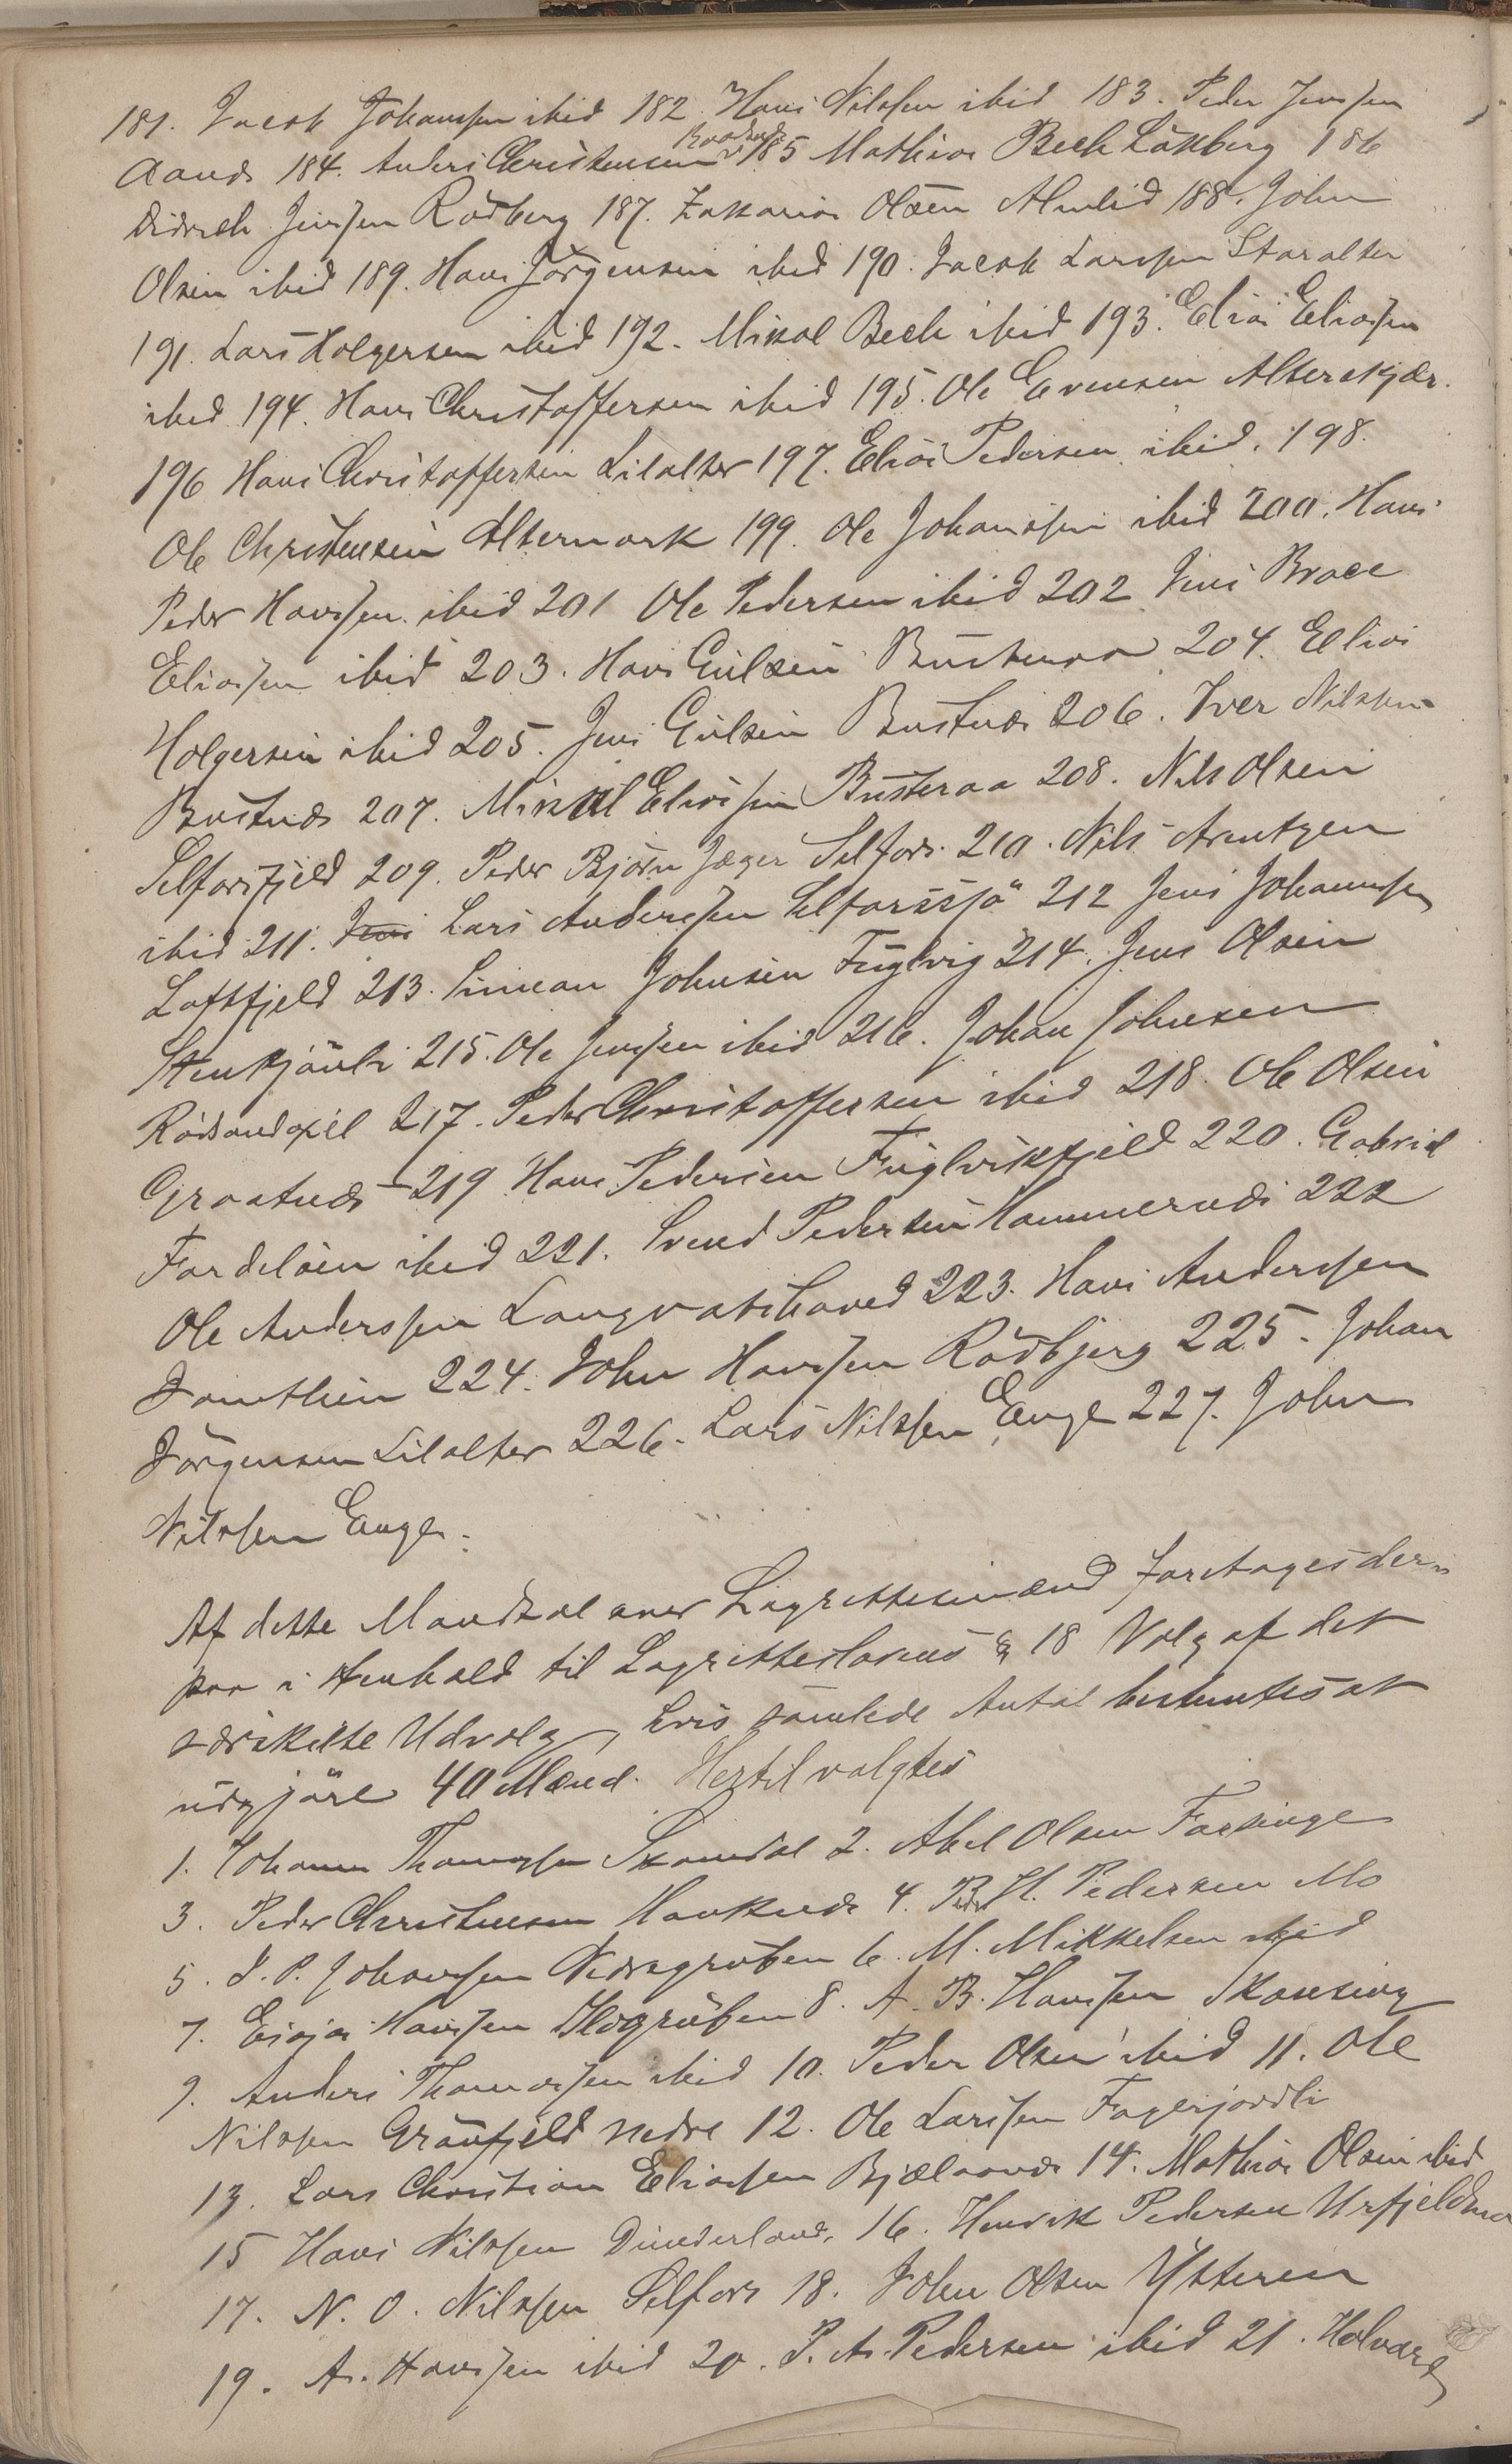 181. Jacob Johanssen ibid 182 Hans Nilssen ibid 183. Peder Jenssen
Aanes 184. Anders Christensen Raadnes 185 Mathias Bech Laxberg 186
Didrich Jenssen Rödberg 187. Zakarias Olsen Almlid 188. John
Olsen ibid 189. Hans Jörgensen ibid 190. Jacob Larssen Storalter
191. Lars Holgersen ibid 192. Mikal Bech ibid 193. Elias Eliassen
ibid 194. Hans Christoffersen ibid 195. Ole Evensen Alterskjær.
196 Hans Christoffersen Lilalter 197. Elias Pedersen ibid. 198.
Ole Christensen Altermark 199. Ole Johanssen ibid 200. Hans
Peder Hanssen ibid 201 Ole Pedersen ibid 202 Jens Brace
Eliassen ibid 203. Hans Gulsen Busteraa 204. Ellias
Holgersen ibid 205. Jens Gulsen Bustnes 206. Iver Nilssen
Bustnes 207. Mikal Eliassen Busteraa 208. Nils Olsen
Selforsfjeld 209. Peder Bjørn Jæger Selfors 210. Nils Arentzen
ibid 211. Jens Lars Anderssen Selforssjö 212 Jens Johannssen
Loftfjeld 213. Simean Johnsen Fuglvig 214. Jens Olsen
Stenkjönli 215. Ole Jenssen ibid 216. Johan Johnsen
Rödsandøiel 217. Peder Christoffersen ibid 218. Ole Olsen
Graatnes 219 Hans Pedersen Fuglvikfjeld 220. Gabriel
Fordelsen ibid 221. Svend Pedersen Hammernes 222
Ole Anderssen Langvatshaved 223. Hans Anderssen
Jamtlien 224. John Hanssen Rödbjerg 225. Johan
Jörgensen Lilalter 226. Lars Nilssen Enge 227. John
Nilssen Enge.
Af dette Mandtal over Lagrettesmænd foretages der-
paa i Henhold til Lagretteslovens § 18 Valg af det
særskilte Udvalg, hvis samlede Antal bestemtes at
udgjöre 40 Mænd. Hertil valgtes
1. Johann Thomassen Skamdal 2. Abel Olsen Forsinge
3. Peder Christensen Hauknes 4. Peder H. Pedersen Mo
5. J. P. Johanssen Nedregruben 6. M. Mikkelsen ibid
7. Esajas Hanssen Ilvgruben 8. A. B. Hanssen Skonseng
9. Anders Thomassen ibid 10. Peder Olsen ibid 11. Ole
Nilssen Grönfjeld nedre 12. Ole Larssen Fagerjordli
13. Lars Christian Eliassen Bjælaanes 14. Mathias Olsen ibid
15 Hans Nilssen Dunderland. 16. Henrik Pedersen Urfjeldmo
17. N. O. Nilssen Selfors 18. John Olsen Ytteren
19. A. Hanssen ibid 20. P. A. Pedersen ibid 21. Halvard